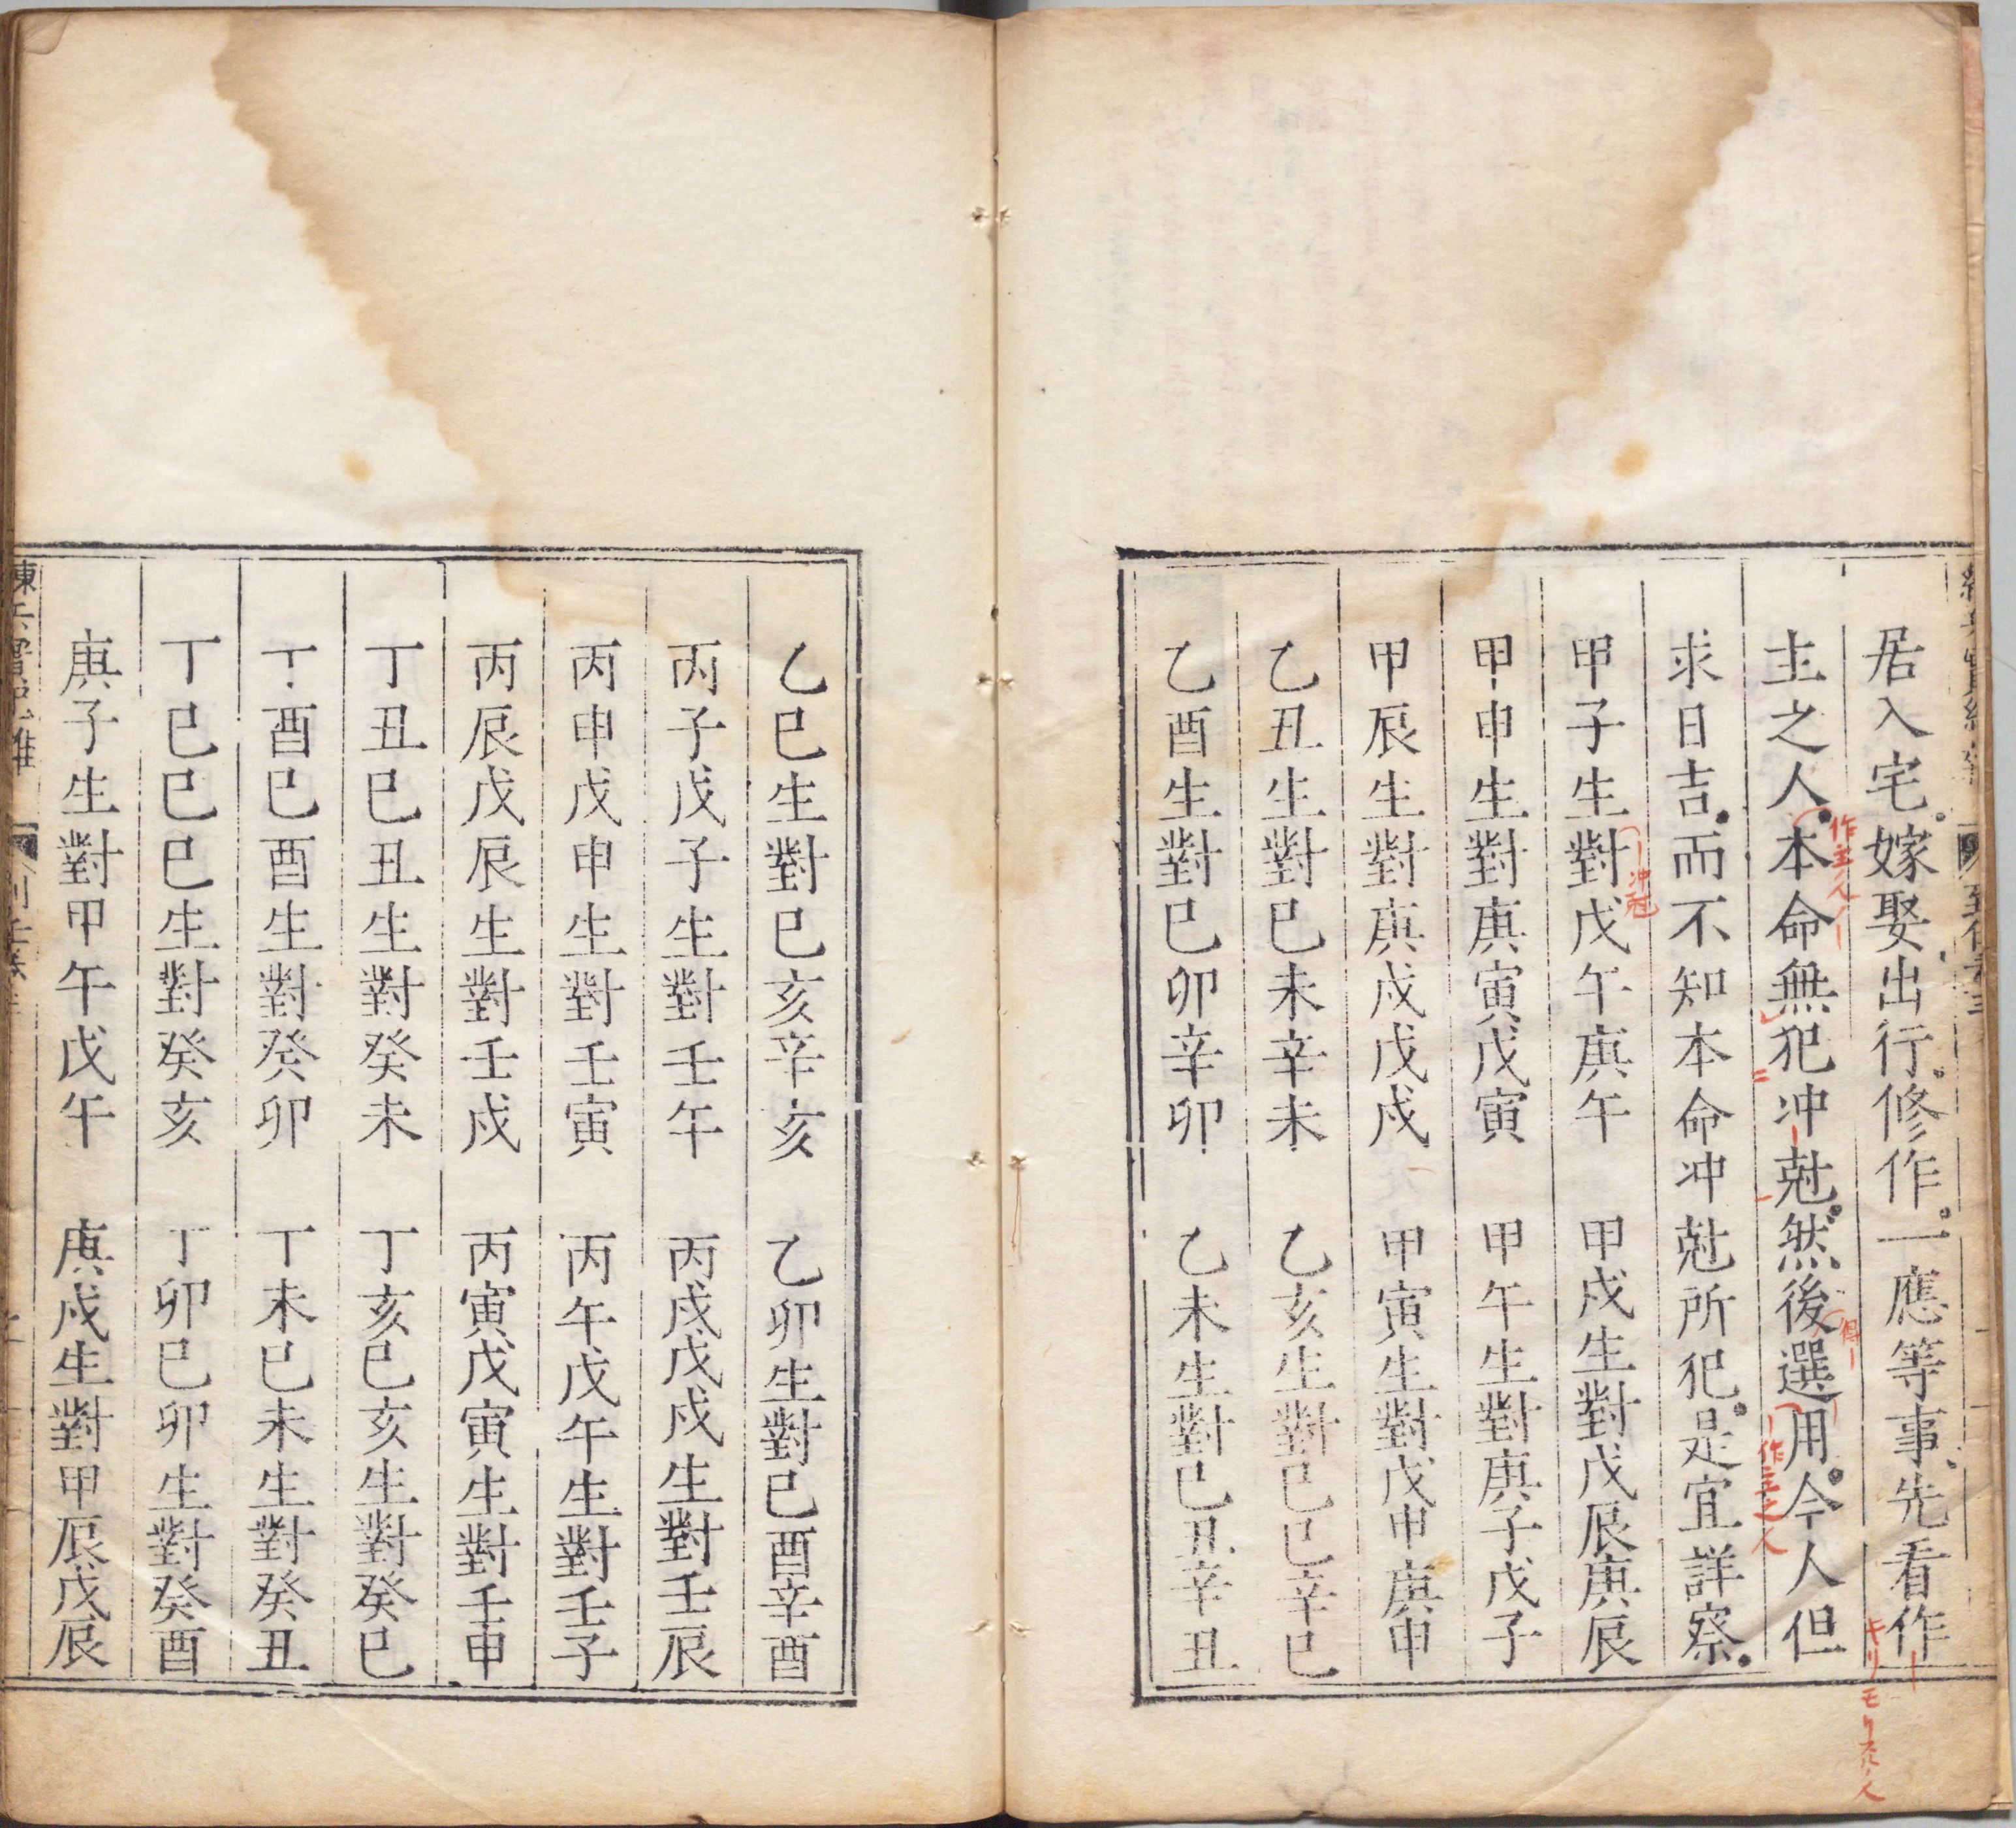 居入宅嫁娶出行修作一應等事先看作
主之人本命無犯冲尅然後選用今人但
求日吉而不知本命冲尅所犯是宜詳察
甲子生對戊午庚午　甲戌生對戊辰庚辰
甲申生對庚寅戊寅　甲午生對庚子戊子
甲辰生對庚戌戊戌　甲寅生對戊申庚申
乙丑生對巳未辛未　乙亥生對巳巳辛巳
乙酉生對巳卯辛卯　乙未生對巳丑辛丑
乙巳生對巳亥辛亥　乙卯生對巳酉辛酉
丙子戊子生對壬午　丙戌戊戌生對壬辰
丙申戊申生對壬寅　丙午戊午生對壬子
丙辰戊辰生對壬戌　丙寅戊寅生對壬申
丁丑巳丑生對癸未　丁亥巳亥生對癸巳
丁酉巳酉生對癸卯　丁未巳未生對癸丑
丁巳巳巳生對癸亥　丁卯巳卯生對癸酉
庚子生對甲午戊午　庚戌生對甲辰戊辰
作主ノ人
冲尅
作主之人